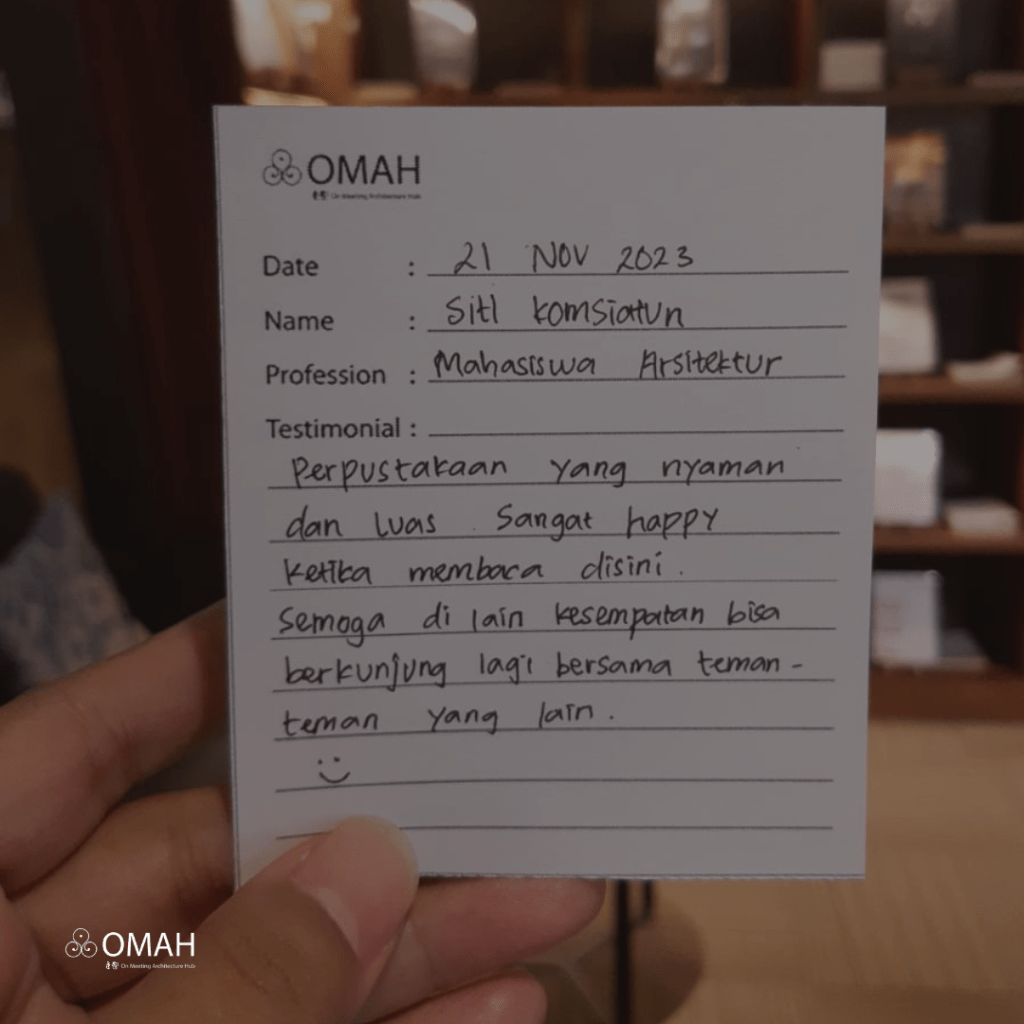 OMAH
On Meeting Architecture Hub
Date : 21 NOV 2023
Name : Siti Komsiatun
Profession : Mahasiswa Arsitektur
Testimonial :
Perpustakaan yang nyaman
dan luas. Sangat happy
ketika membaca disini.
Semoga di lain kesempatan bisa
berkunjung lagi bersama teman-
teman yang lain.
OMAH
On Meeting Architecture Hub